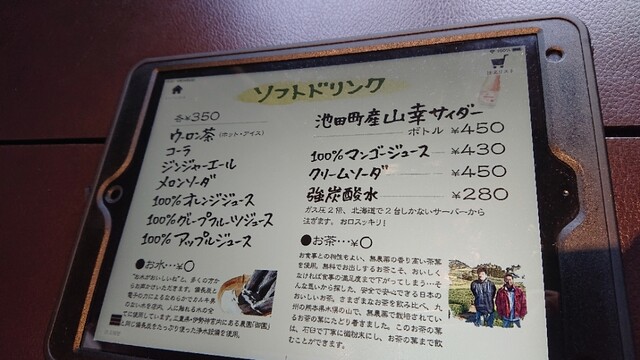 ソフトドリンク
注文リスト
各¥350
ウーロン茶(ホット・アイス)
コーラ
ジンジャーエール
メロンソーダ
100%オレンジジュース
100%グレープフルーツジュース
100%アップルジュース
●お水…¥〇
"お水がおいしいね"と、多くの方か
池田町産山幸サイダー
ボトル ¥450
100%マンゴージュース ¥430
クリームソーダ ¥450
強炭酸水 ¥280
ガス圧2倍、北海道で2台しかないサーバーから
注ぎます。お口スッキリ!
●お茶…¥〇
お食事との相性もよい、無農薬の香り高い茶葉
を使用。無料でお出しするお茶こそ、おいしく
なければ食事の満足度まで下がってしまう…そ
んな思いから探した、安全で安べできる日本の
おいしいお茶。さまざまなお茶を飲み比べ、九
州の熊本県水俣の山で、無農薬で栽培されてい
るお茶の葉にたどり着きました。このお茶の葉
は、石臼で丁寧に微粉末にし、お茶の葉まで飲
むことができます。